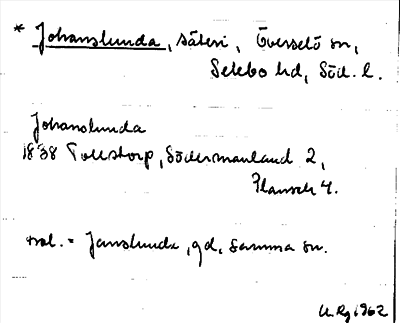 * Johanslunda, säteri, Överselö sn,
Selebo hd, Söd. l.
Johanslunda
1838 Tollstorp, Södermanland 2,
Plansch 4.
= Janslunda, gd, samma sn.
1962